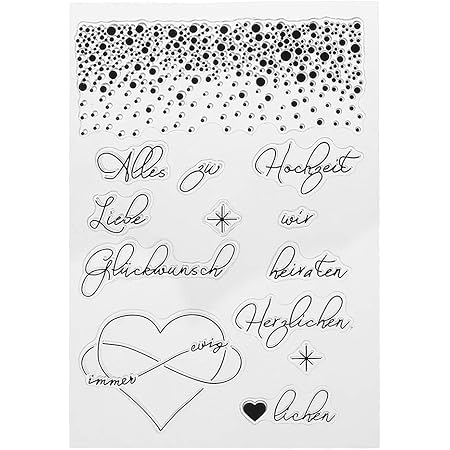 Alles zu Hochzeit
Liebe wir
Glückwunsch heiraten
Herzlichen
ewig
immer
lichen